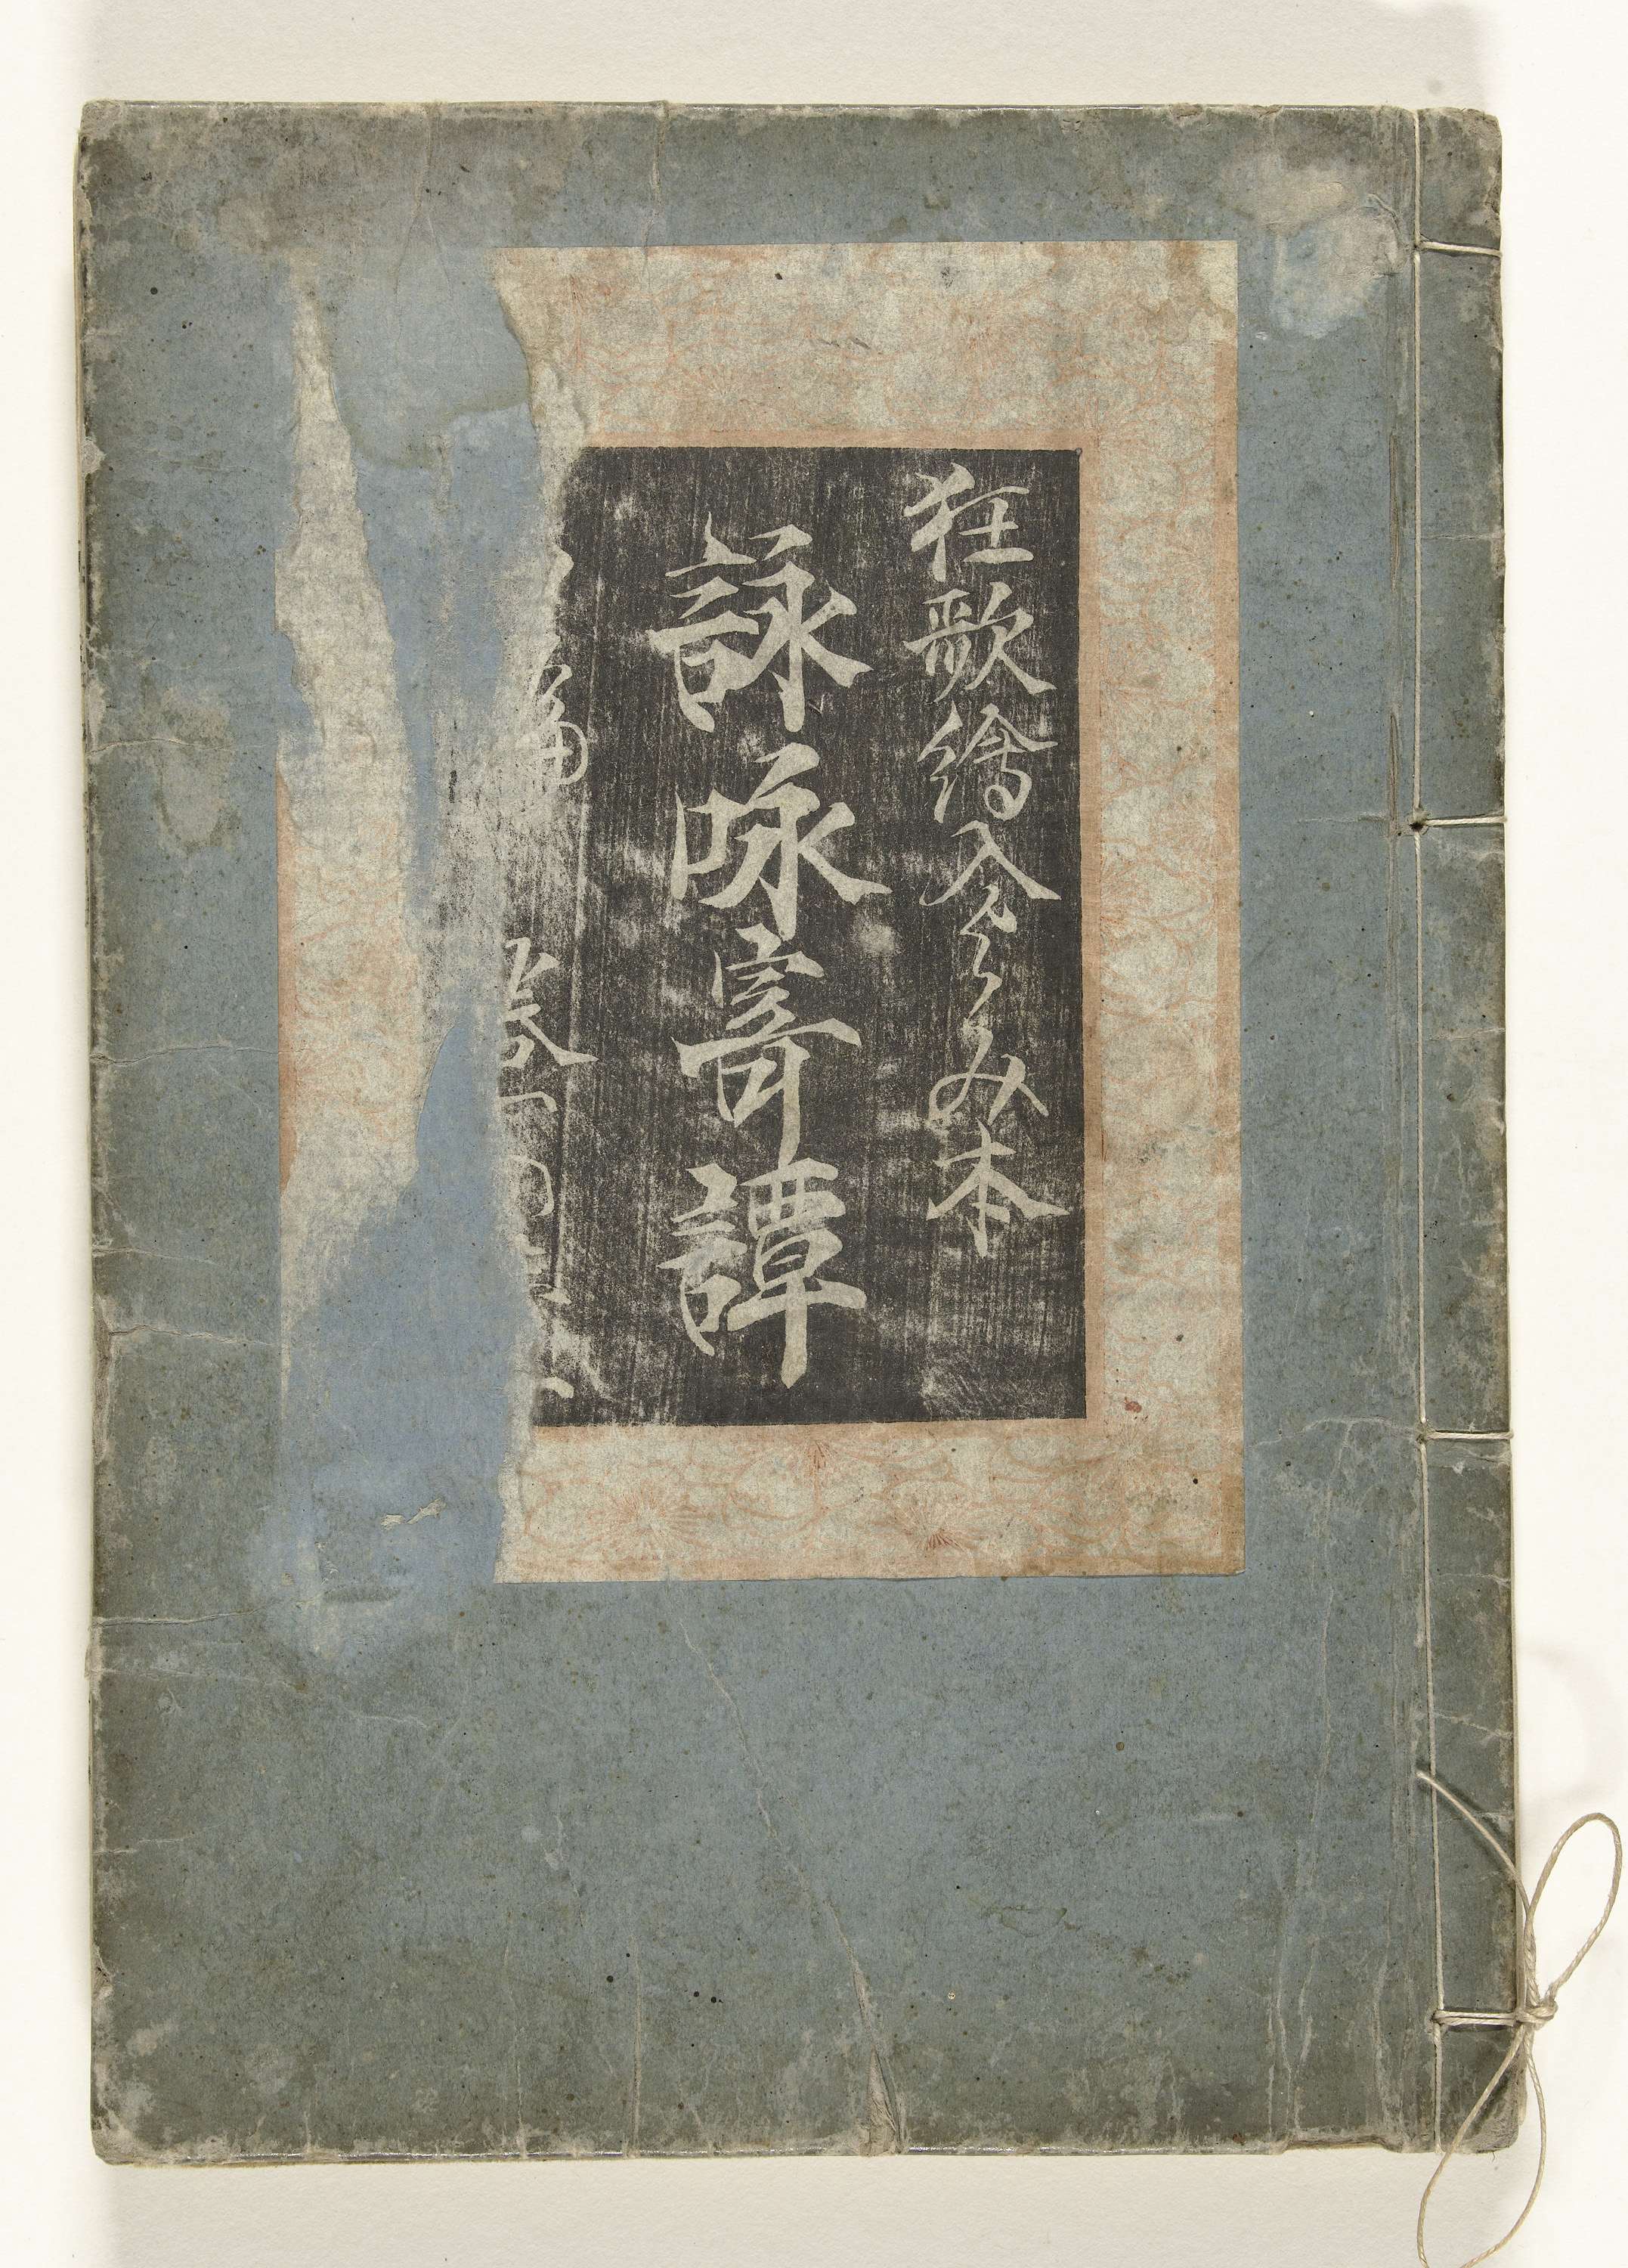 狂歌繪入よみ本
詠咏寄譚